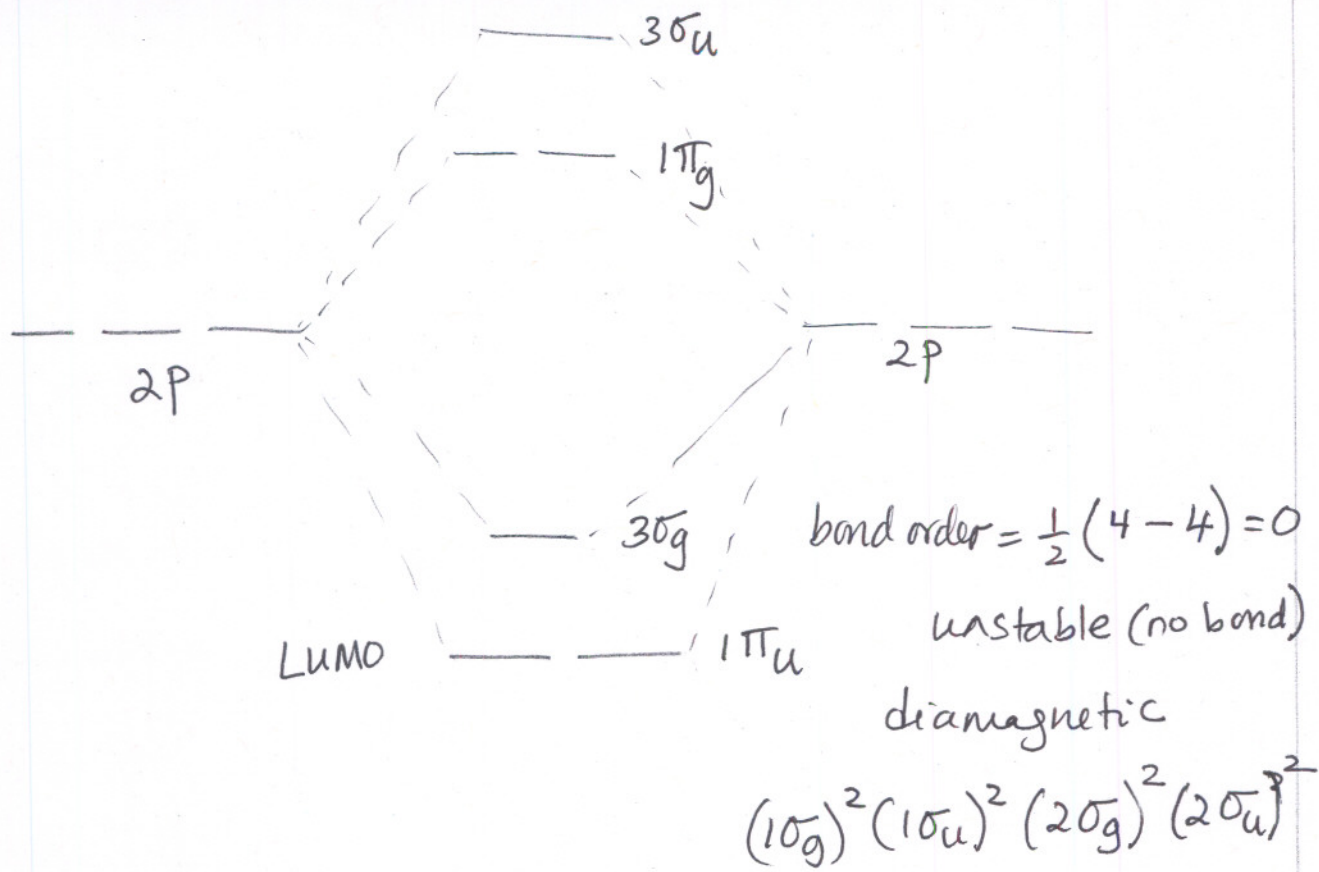 3σu
1πg
2p
2p
3σg
bond order = 1/2 (4 − 4) = 0
unstable (no bond)
LUMO
1πu
diamagnetic
(1σg)² (1σu)² (2σg)² (2σu)²